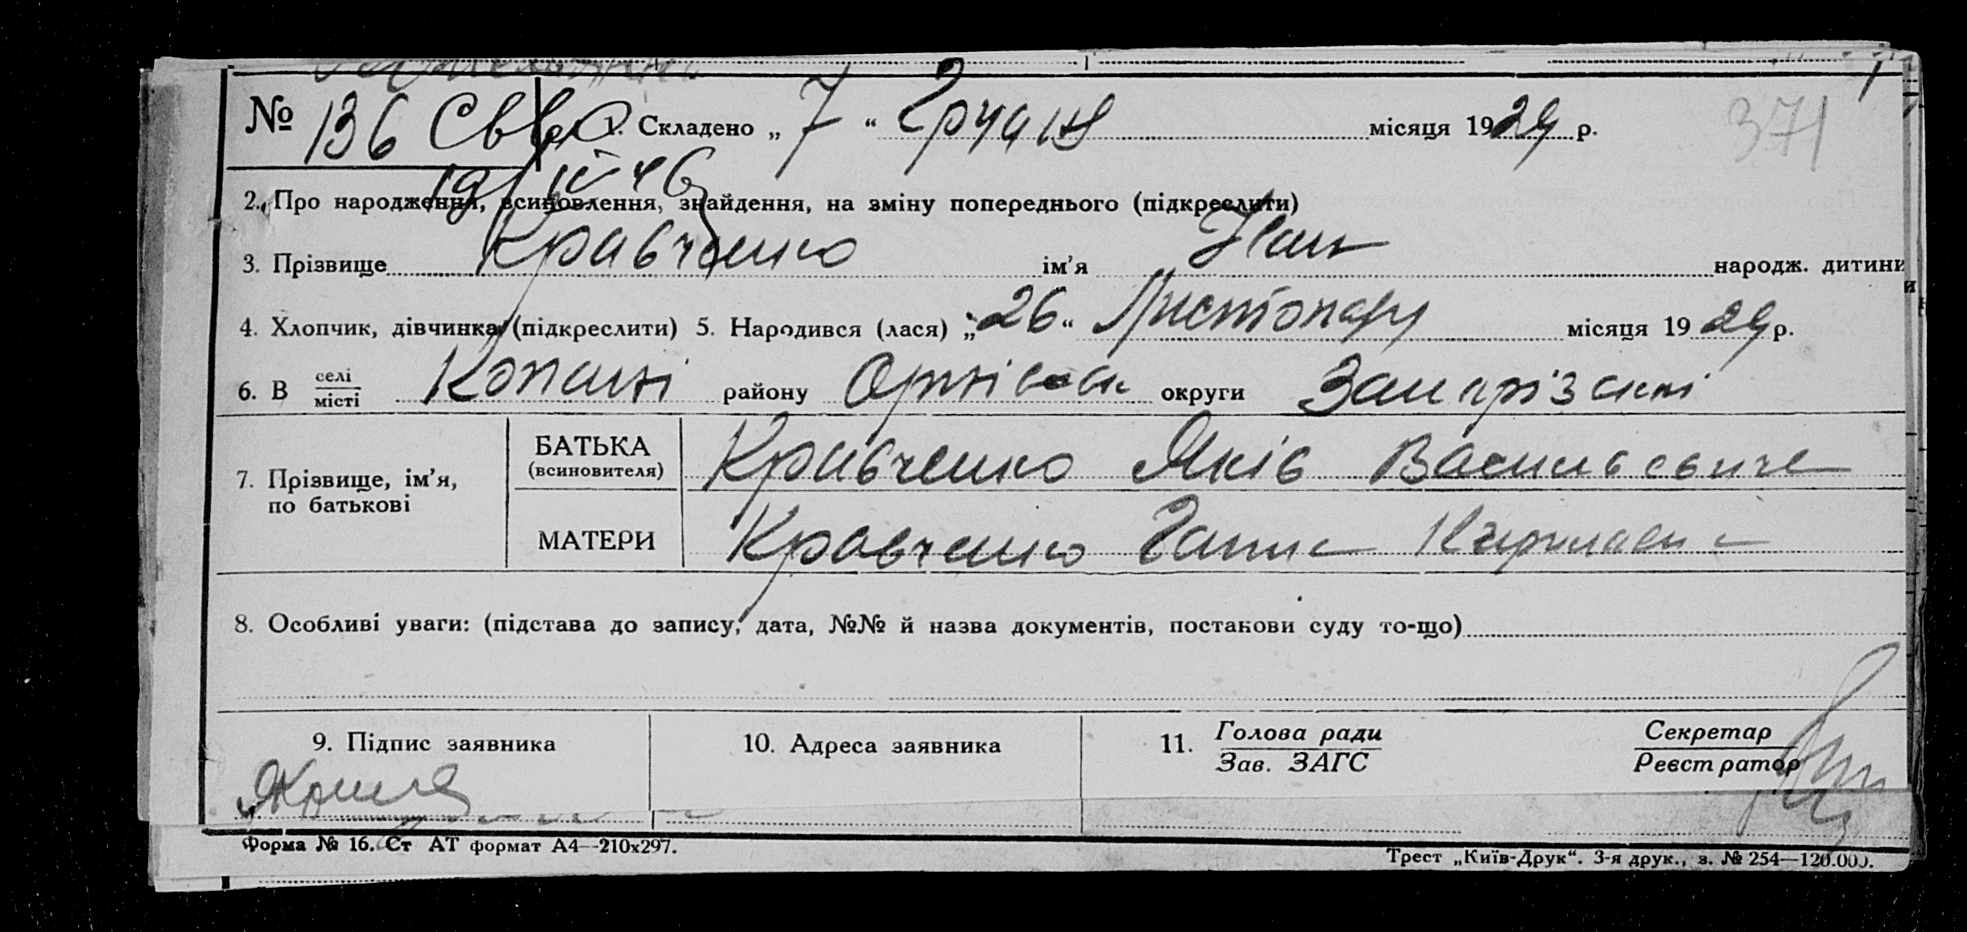 № 136 1. Складено „ 7 “ Грудня місяця 1929 р. 371
19/IV 46
2. Про народження, всиновлення, знайдення, на зміну попереднього (підкреслити)
3. Прізвище Кравченко ім'я народж. дитини
4. Хлопчик, дівчинка (підкреслити) 5. Народився (лася) „ 26 “ Листопаду місяця 1929 р.
6. В селі місті Копані району округи
7. Прізвище, ім'я, по батькові
БАТЬКА (всиновителя) Кравченко Яків Васильович
МАТЕРИ Кравченко
8. Особливі уваги: (підстава до запису, дата, №№ й назва документів, постанови суду то-що)
9. Підпис заявника 10. Адреса заявника 11. Голова ради Секретар
Зав. ЗАГС Реєстратор
Форма № 16. Ст АТ формат А4—210х297.
Трест „Київ-Друк“. 3-я друк., з. № 254—120.000.